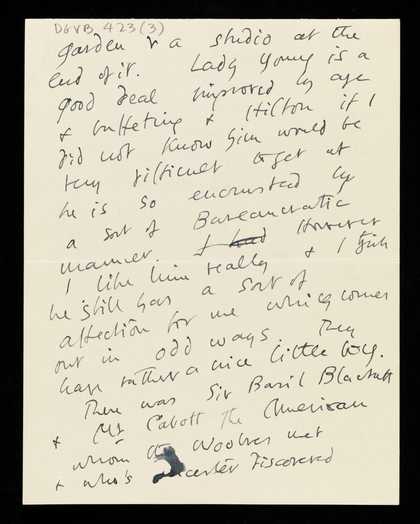 DGVB 423(3)
garden & a studio at the
end of it. Lady Young is a
good deal improved by age
& buffeting & Hilton if I
did not know him would be
very difficult to get at
he is so encrusted by
a sort of Bureaucratic
manner. I had However
I like him really & I think
he still has a sort of
affection for me which comes
out in odd ways They
have rather a nice little boy.
There was Sir Basil Blackett
& Mr Cabott the American
whom the Woolves met
& who's ancestor discovered